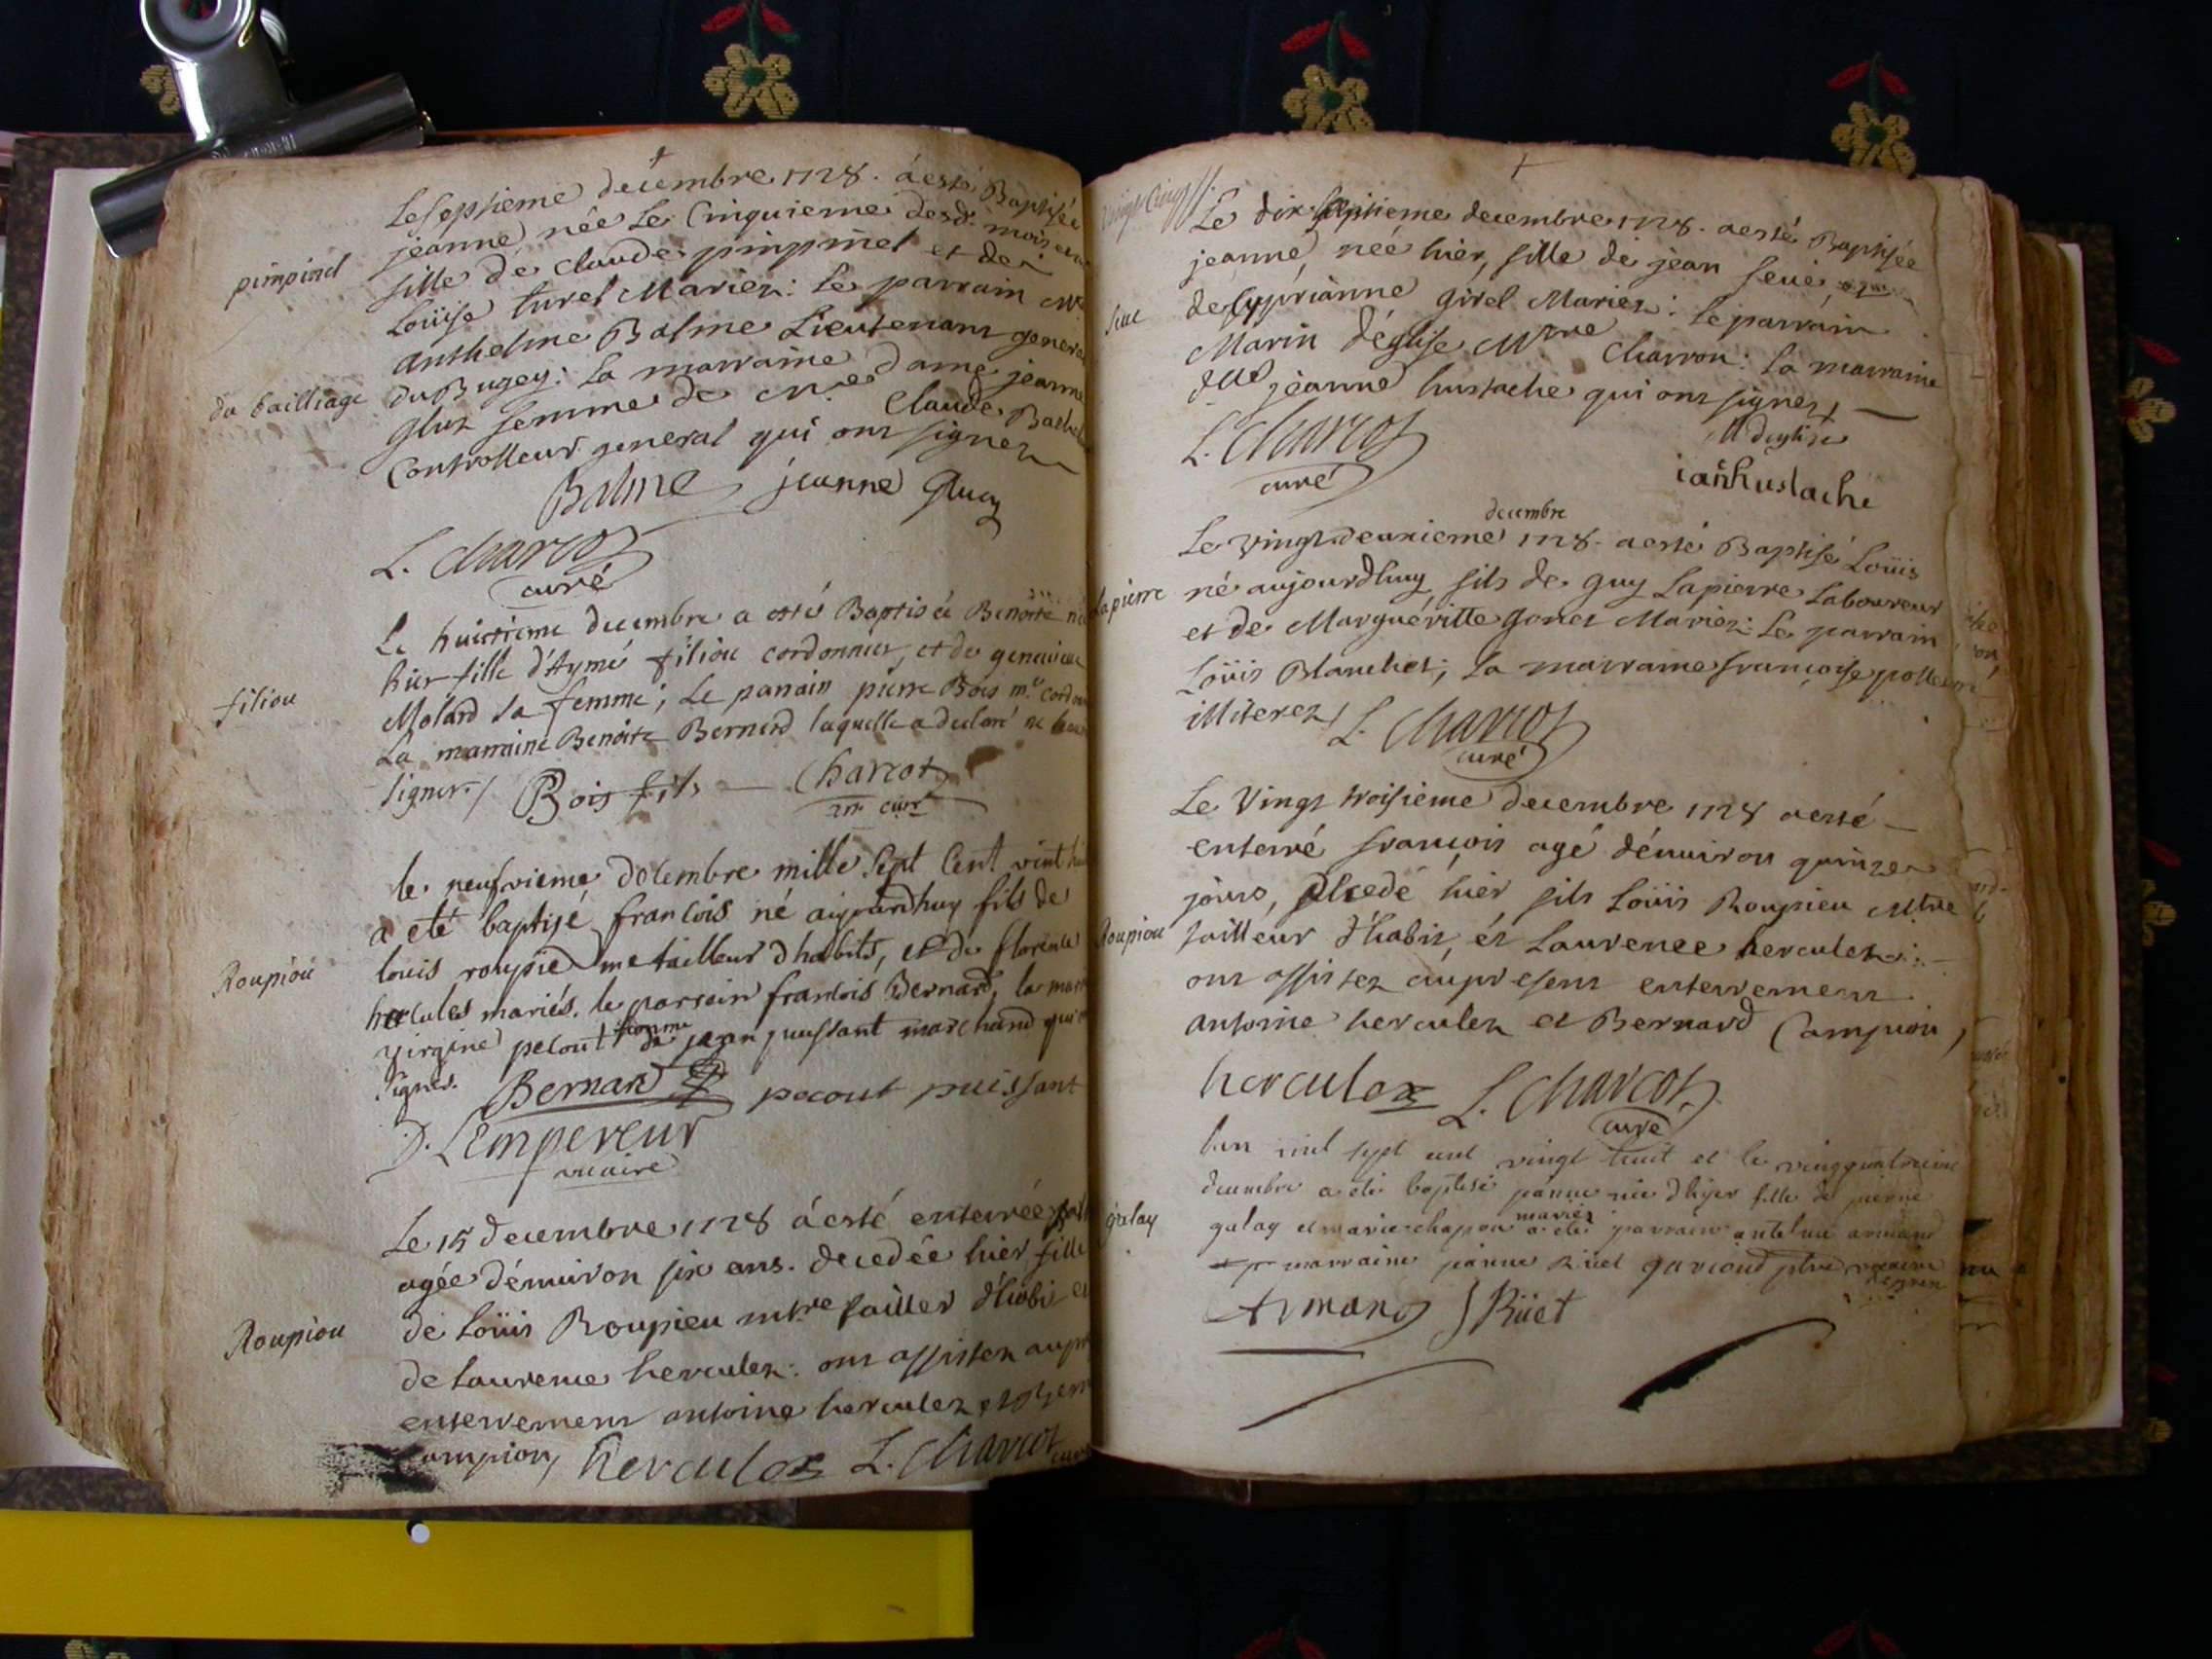 Le septieme decembre 1728. a esté Baptisée
jeanne, née Le Cinquieme desd. mois
pimpinel
fille de claude pimpinel et de
Loüise turel Mariez: Le parrain
anthelme Balme Lieutenant general
du bailliage
du Bugey: La marraine dame jeanne
gluz femme de Claude
Controlleur general qui ont signez
Balme jeanne Gluz
L. Charcot
curé
Le huictieme decembre a esté Baptisée Benoite née
hier fille d'Aymé filiou cordonnier, et de
filiou
Molard sa femme; Le parrain pierre Bois m.e
La marraine Benoite Bernerd laquelle a declaré ne
signer./ Bois fils Charcot
le neufvieme dolembre mille sept Cent vint
a eté baptisé francois né aujourdhuy fils de
Roupiou
louis roupied me tailleur dhabits, et de florence
hercules mariés. le parrain francois Bernard, la
virgine pecout femme de jean puissant marchand
signés. Bernard pecout puissant
D. LEmpereur
vicaire
Le 15 decembre 1728 a esté enterrée
agée d'énuiron six ans. decedée hier fille
Roupiou
de Loüis Roupieu mtre tailler d'habis et
de Laurence herculez: ont assistez
enterrement antoine herculez
campion, herculez L. Charcot
Le dix septieme decembre 1728. a esté Baptisée
jeanne, neé hier, fille de jean seue
seue
de Cyprianne girel Mariez: Le parrain
Marin d'église Mtre Charron: La marraine
jeanne hustache qui ont signez
L. Charcot
curé
M deglise
ian hustache
decembre
Le vingt deuxieme 1728. a esté Baptisé Loüis
Lapierre
né aujourdhuy fils de guy Lapierre Laboureur
et de Marguéritte gonet Mariez: Le parrain
Loüis Blanchet; La marraine françoise
illiterez, L. Charcot
curé
Le Vingt troisieme decembre 1728 a esté
enterré françois agé d'énuiron quinze
jours, decedé hier fils Loüis Roupieu Mtre
Roupiou
tailleur d'habis, et Laurence herculez:
ont assistez au present enterrement
antoine herculez et Bernard Campion,
herculez L. Charcot
curé
lan mil sept cent vingt huit et le vingquatrieme
decembre a eté baptisé janne née dhyer fille de pierre
galay
mariez
galay et marie chapou a eté parrain antelme armand
marraine janne Rüet
Armand J Rüet